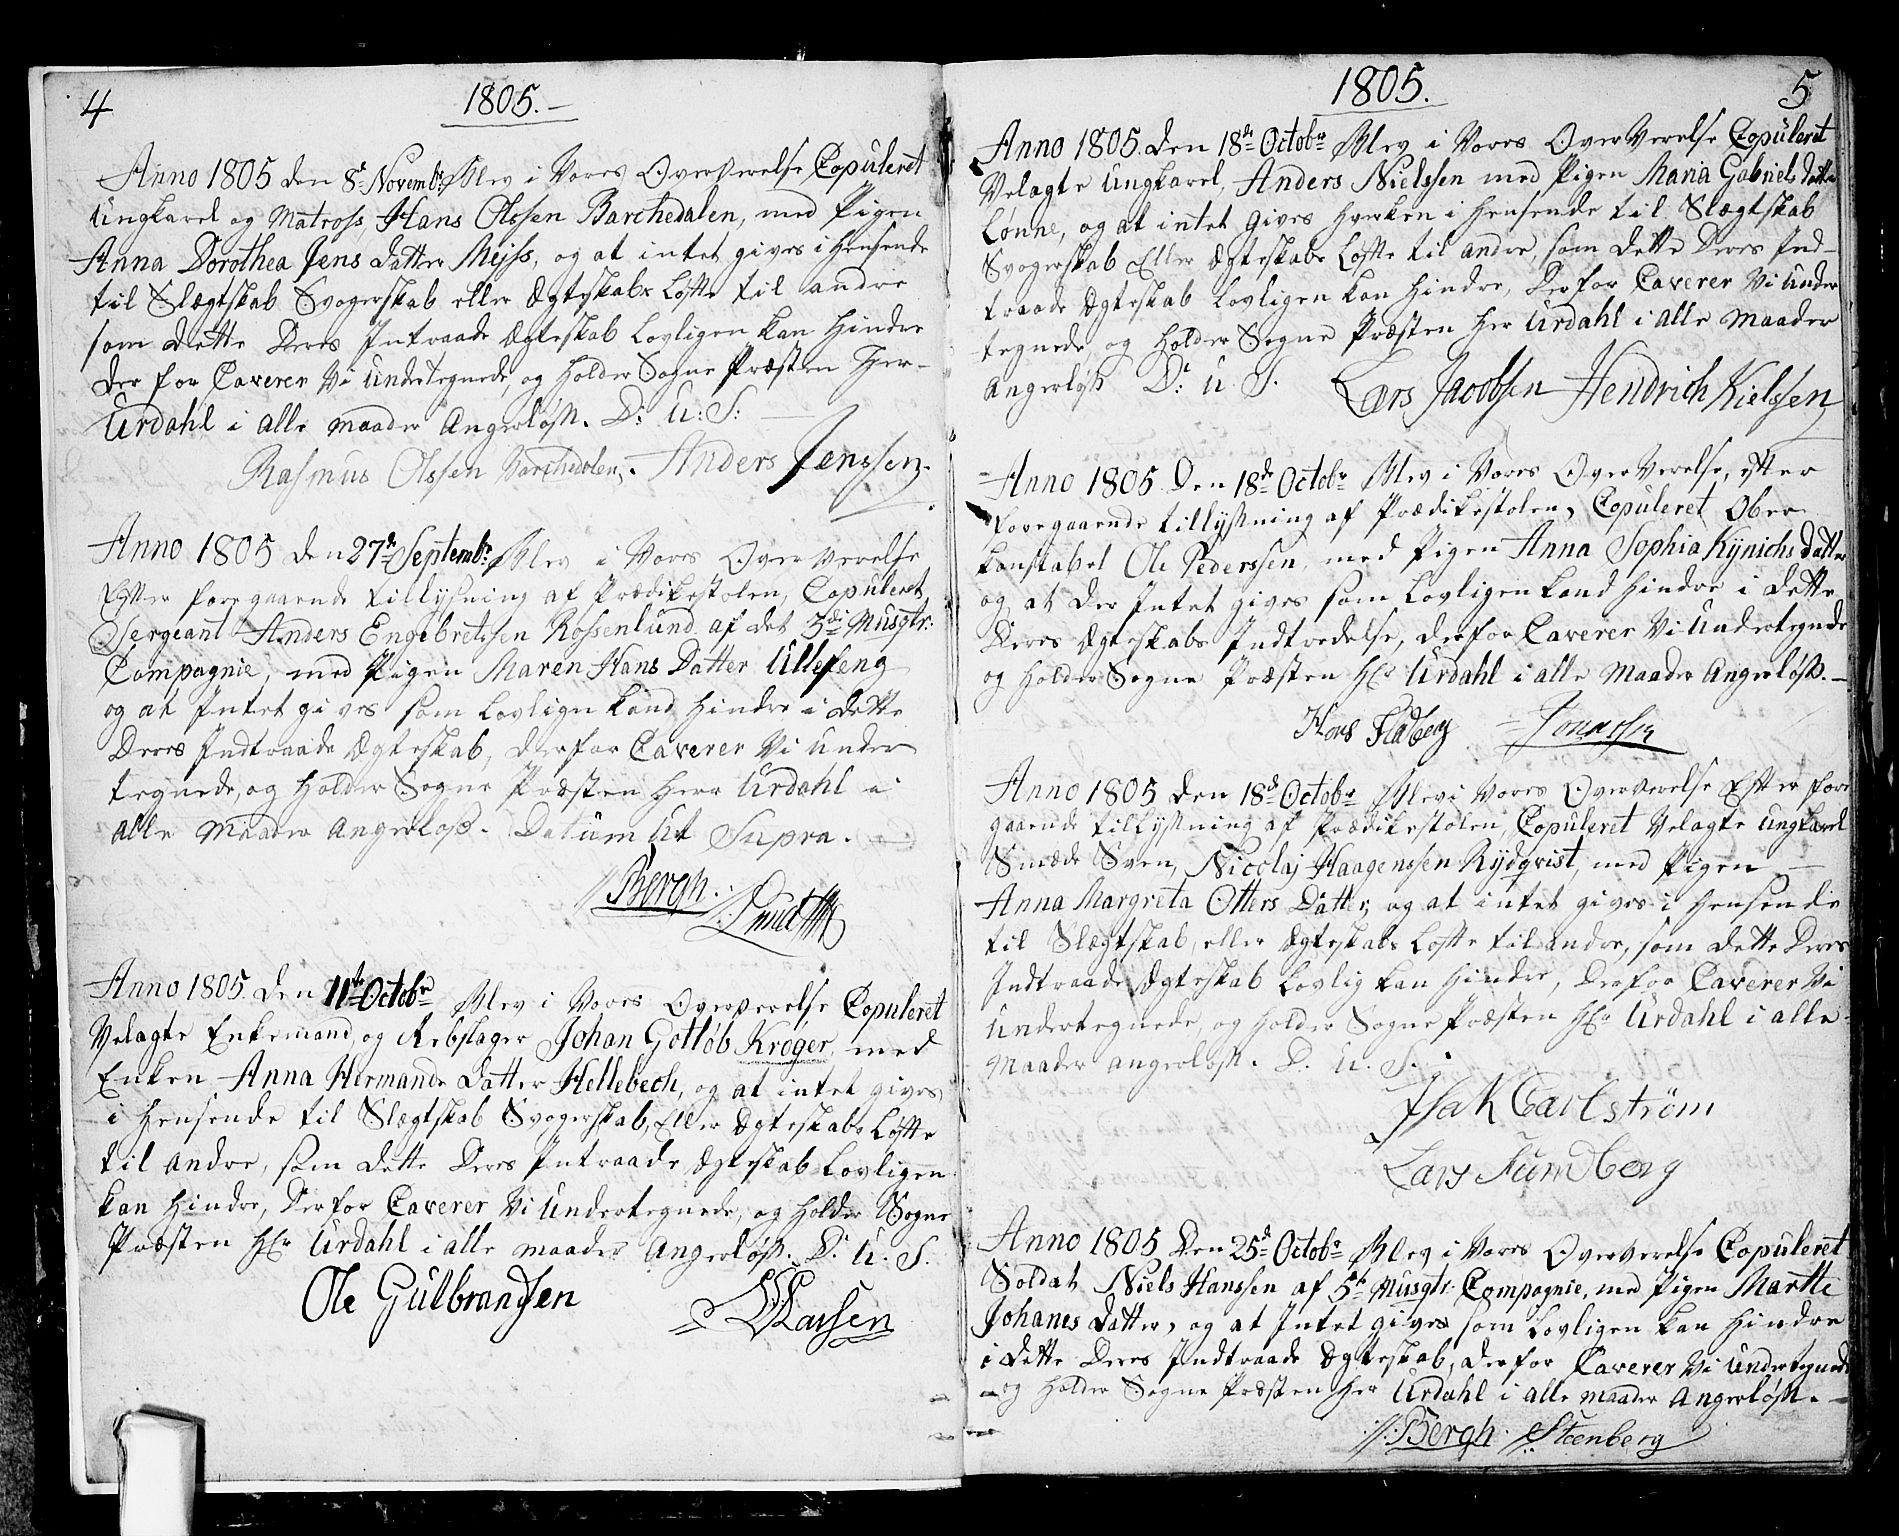 4
1805.
Anno 1805 den 8d Novembr Blev i Vores Oververelse Copuleret
Ungkarel og Matross, Hans Olssen Barchedalen, med Pigen
Anna Dorothea Jens datter Mejss, og at intet gives i Hensende
til Slægtskab Svogerskab eller Ægteskabs Løfte til andre
som dette Deres Intraade Ægteskab Lovligen kan Hindre
der for Caverer Vi Undertegnede, og holder Sogne Præsten Her
Urdahl i alle maader Angerløss. D: U: S:
Rasmus Olssen Barchedolen, Anders Jenssen.
Anno 1805 den 27de Septembr. Blev i Vores Over verelse
Efter foregaaende tillysning af Prædikestolen, Copuleret,
Sergeant Anders Engebretssen Rossenlund af det 3di Musqtr:
Compagnie, med Pigen Maren Hans Datter Ullefeng
og at Intet gives som Lovlign kand hindre i dette
Deres Indtraade Ægteskab, derfor Caverer Vi Under
tegnede, og Holder Sogne Præsten Herr Urdahl i
alle maader angerløss. Datum Ut Supra.
Bergh.
Anno 1805. den 11te Octobr Blev i Vores Oververelse Copuleret
Velagte Enkemand, og Rebslager Johan Gotløb Krøger, med
Enken Anna Hermands datter Hellebech, og at intet gives
i Hensende til Slægtskab Svogerskab, Eller Ægteskabs Løfte
til andre, som dette Deres Intraade Ægteskab Lovligen
kan Hindre, Derfor Caverer Vi Undertegnede, og holder Sogne
Præsten Hr Urdahl i alle maader Angerløss. D. U. S.
Ole Gulbrandsen
Larsen
1805.
5
Anno 1805. den 18de Octobr Blev i Vores Over Verelse Copuleret
Velagte Ungkarel, Anders Nielssen med Pigen Maria Gabriels datter
Lønne, og at intet gives hverken i Hensende til Slægtskab
Svogerskab Eller Ægteskabs Løfte til andre, som dette Deres Ind-
traade Ægteskab Lovligen kan Hindre, Derfor Caverer Vi Under
tegnede og Holder Sogne Præsten Her Urdahl i alle maader
Angerløss D: U. S.
Lars Jacobsen Hendrich Kielssen
Anno 1805 Den 18de Octobr Blev i Vores Over Verelse, efter
foregaaende tillysning af Prædikestolen, Copuleret Ober
konstabel Ole Pederssen, med Pigen Anna Sophia Kynichs datter
og at der Intet gives som Lovligen kand hindre i dette
Deres Ægteskabs Indtrædelse, derfor Caverer Vi Undertegnde
og holder Sogne Præsten Hr Urdahl i alle Maader Angerløss.
Hans Fladberg
Anno 1805 den 18de Octobr Blev i Vores Oververelse Efter fore
gaaende tillysning af Prædikestolen, Copuleret Velagte Ungkarel
Smede Sven, Nicolaj Haagenssen Rydqvist, med Pigen
Anna Margreta Otters Datter, og at intet gives i Hensende
til Slægtskab, eller Ægteskabs Løfte til andre, som dette Deres
Indtraade Ægteskab Lovlig kan Hindre, Derfor Caverer Vi
Undertegnede, og holder Sogne Præsten Hr Urdahl i alle
maader angerløss. D. U. S.
Isak Carlstrøm
Lars Sundberg
Anno 1805 Den 25de Octobr Blev i Vores Oververelse Copuleret
Soldat Niels Hanssen af 5te Musqtr: Compagnie, med Pigen Marthe
Johanes datter, og at Intet gives som Lovligen kan Hindre
i dette Deres Indtraade Ægteskab, derfor Caverer Vi Undertegnede
og holder Sogne Præsten Her Urdahl i alle maader Angerløss.
Bergh. Steenberg